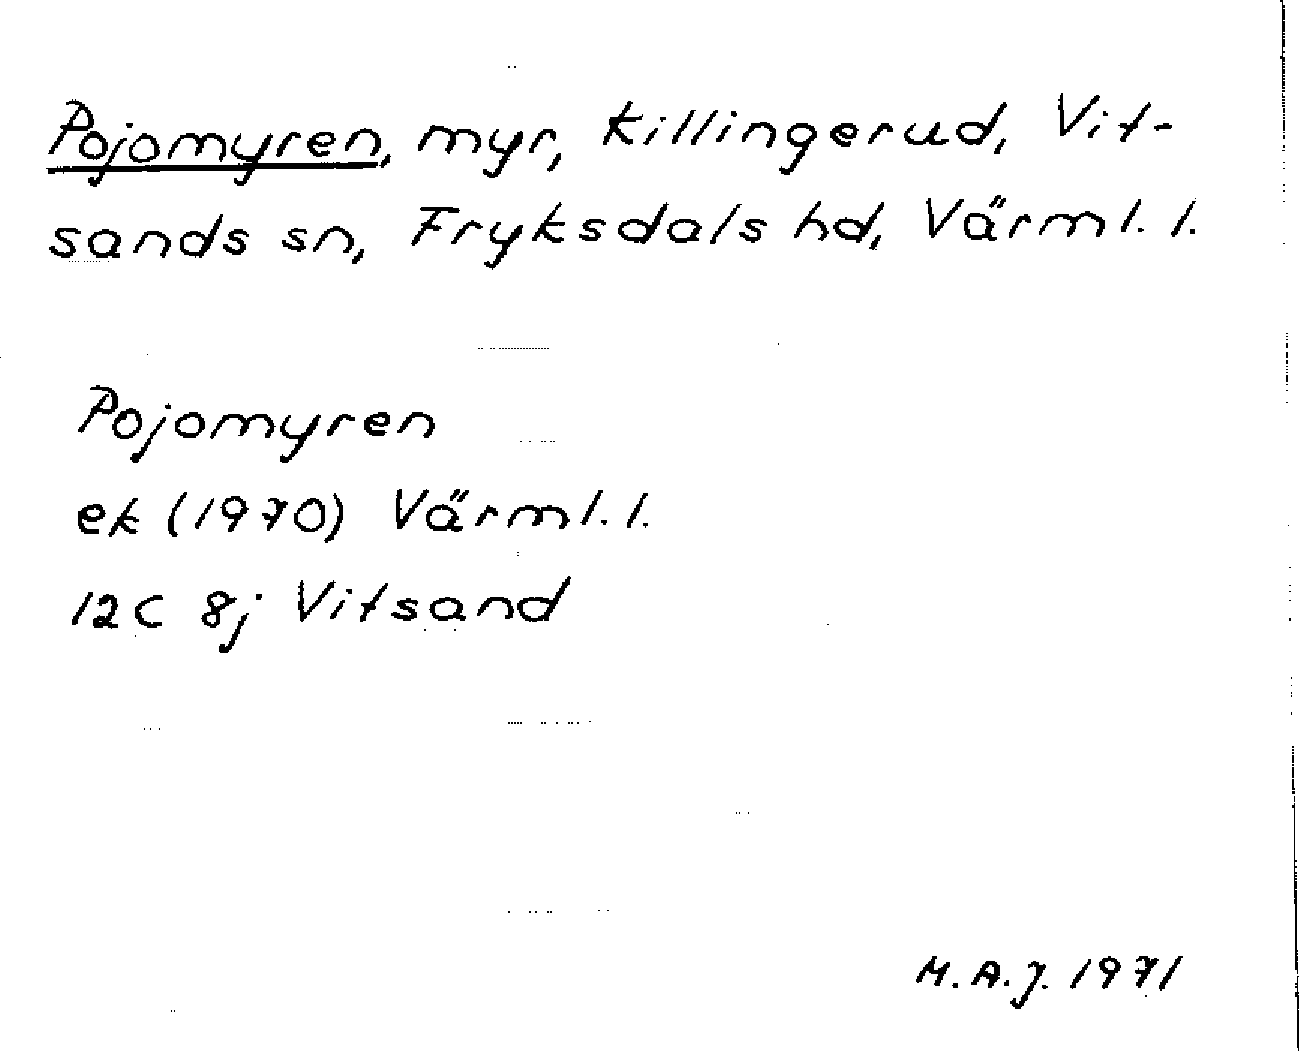 Pojomyren, myr, Killingerud, Vit-
sands sn, Fryksdals hd, Värml. l.
Pojomyren
ek (1970) Värml. l.
12C 8j Vitsand
M.A.J. 1971